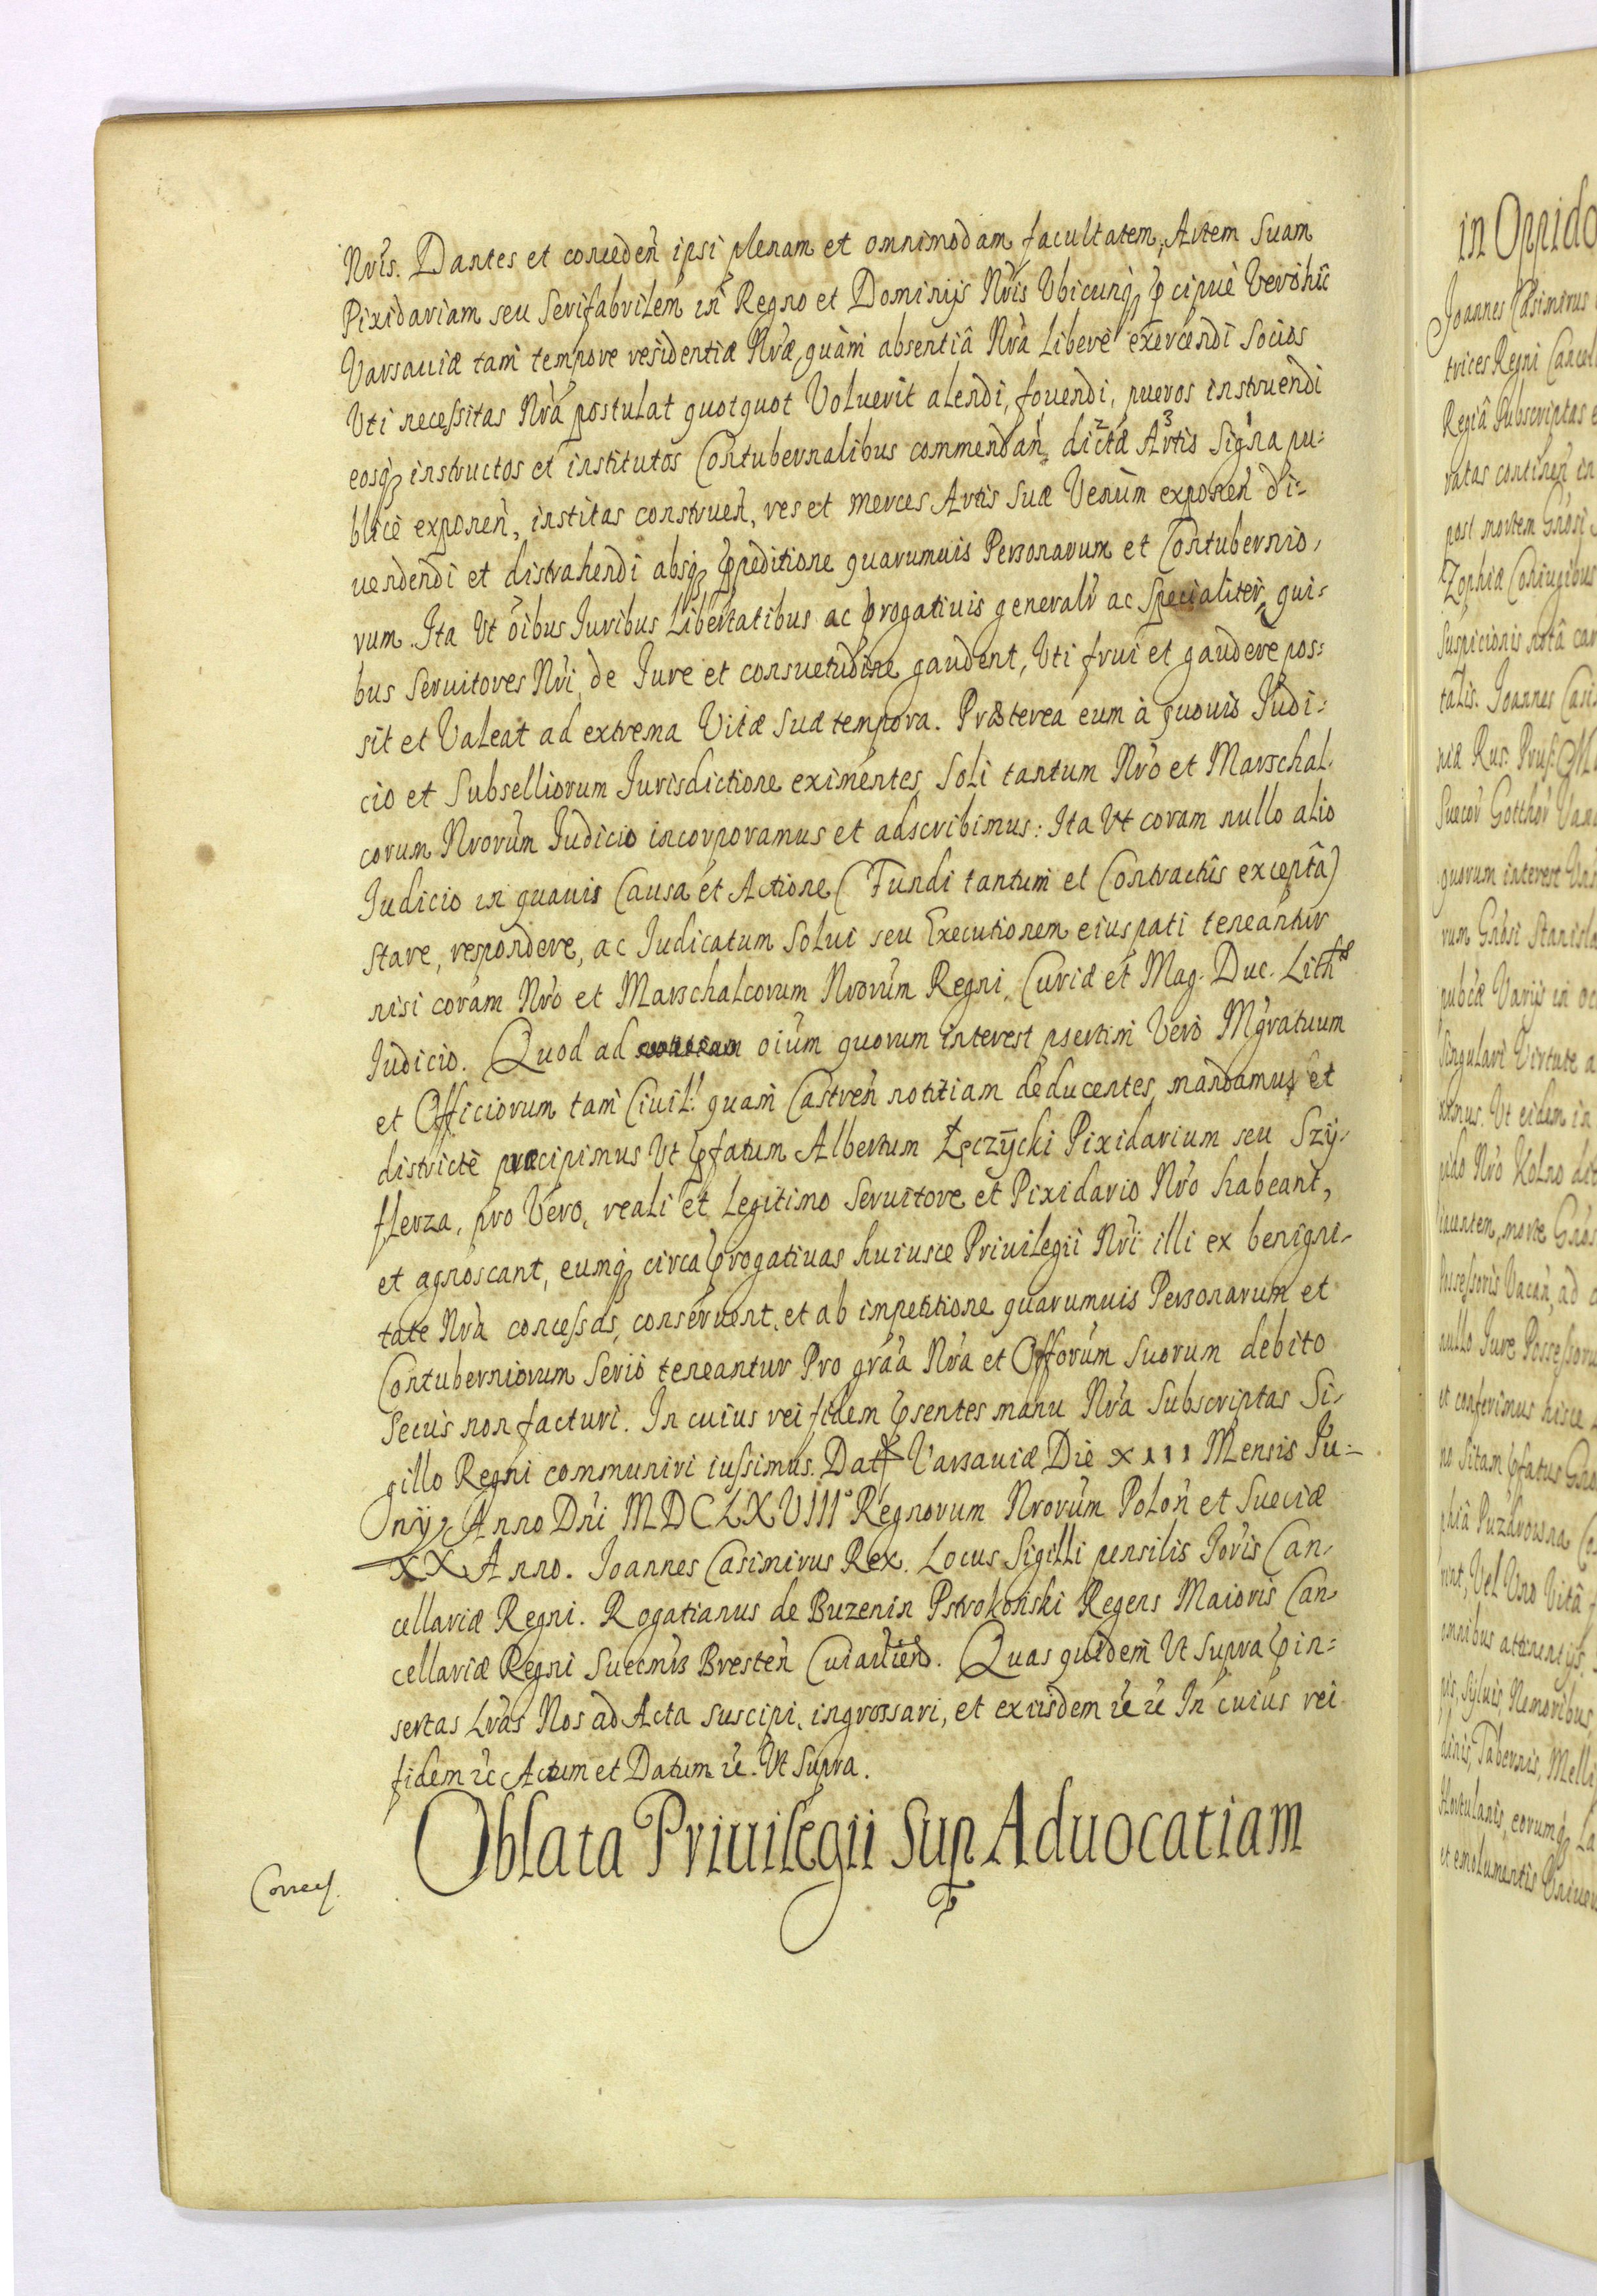 Nr̃is. Dantes et conceden̄ ipsi plenam et omnimodam facultatem, Artem Suam
Pixidariam seu Serifabrilem in Regno et Dominijs Nr̃is Vbicunq̢ p̃cipuè Verò hîc
Varsauiæ tam tempore residentiæ Nr̃æ, quàm absentiâ Nr̃â Liberè exercendi Socios
Vti necessitas Nr̃a postulat quotquot Voluerit alendi, fouendi, pueros instruendi
eosq̢ instructos et institutos Contubernalibus commendan̄, dictæ Artis Signa pu=
blicè exponen̄, institas construen̄, res et merces Artis Suæ Venùm exponen̄ di=
uendendi et distrahendi absq̢ p̃peditione quarumuis Personarum et Contubernio,
rum. Ita Vt õibus Iuribus Libertatibus ac p̃rogatiuis generalr̃ ac Specialiter, qui=
bus Seruitores Nr̃i de Iure et consuetudine gaudent, Vti frui et gaudere pos=
sit et Valeat ad extrema Vitæ Suæ tempora. Præterea eum à quouis Iudi=
cio et Subselliorum Iurisdictione eximentes, Soli tantum Nr̃o et Marschal,
corum Nr̃orum Iudicio incorporamus et adscribimus: Ita Vt coram nullo alio
Iudicio in quauis Causa et Actione (Fundi tantum et Contractûs exceptâ)
stare, respondere, ac Iudicatum Solui seu Executionem eius pati teneantur
nisi coram Nr̃o et Marschalcorum Nr̃orum Regni, Curiæ et Mag. Duc. Lith
Iudicio. Quod ad oium quorum interest p̃sertim Verò Mgr̃atuum
et Officiorum tam Ciuil: quam Castren̄ notitiam deducentes, mandamus et
districtè præcipimus Vt p̃fatum Albertum Łęczÿcki Pixidarium seu Szÿ,
flerza, pro Vero, reali et Legitimo Seruitore et Pixidario Nr̃o habeant,
et agnoscant, eumq̢ circa p̃rogatiuas huiusce Priuilegii Nr̃i illi ex benigni,
tate Nr̃a concessas, conseruent, et ab impetitione quarumuis Personarum et
Contuberniorum Seriò teneantur Pro gr̃aa Nr̃a et Offorum Suorum debito
Secus non facturi. In cuius rei fidem p̃sentes manu Nr̃a Subscriptas Si,
gillo Regni communiri iussimus. Dat Varsauiæ Die XIII Mensis Iu=
nÿ Anno Dn̄i MDCLXVIII° Regnorum Nr̃orum Polon̄ et Sueciæ
XX Anno. Ioannes Casimirus Rex. Locus Sigilli pensilis Ioris Can,
cellariæ Regni. Rogatianus de Buzenin Pstrokoński Regens Maioris Can
cellariæ Regni Bresten̄ Cuiauien̄. Quas quidem Vt Supra p̃in=
sertas Lr̃as Nos ad Acta suscipi, ingrossari, et ex iisdem &c &c In cuius rei
fidem &c Actum et Datum &c. Vt Supra.
Oblata Priuilegii Sup̱ Aduocatiam
Correct.
in Oppido
Joannes Casimirus
trices Regni Cancel
Regiâ Subscriptas e
ratas continen̄ in
post mortem Gnosi
Zophiæ Coniugibus
Suspicionis notâ car
talis. Joannes Casi
niæ Rus: Prus: M
Suecor̃ Gotthor̃ Van
quorum interest Vn
rum Gnosi Stanisla
pubcæ Varijs in oc
Singulari Virtute a
ximus. Vt eidem in
pido Nr̃o Kolno dic
iacentem, morte Gnosi
Possessoris Vacan̄, ad
nullo Iure Possessoru
et conferimus hisce
no Sitam p̃fatus Gno
phiâ Puzdrowna Co
rint, Vel Uno Vitâ f
omnibus attinentijs,
pis, Syluis, Nemoribus,
dinis, Tabernis, Melli
Hortulanis, eorumq̢ La
et emolumentis Vniuers